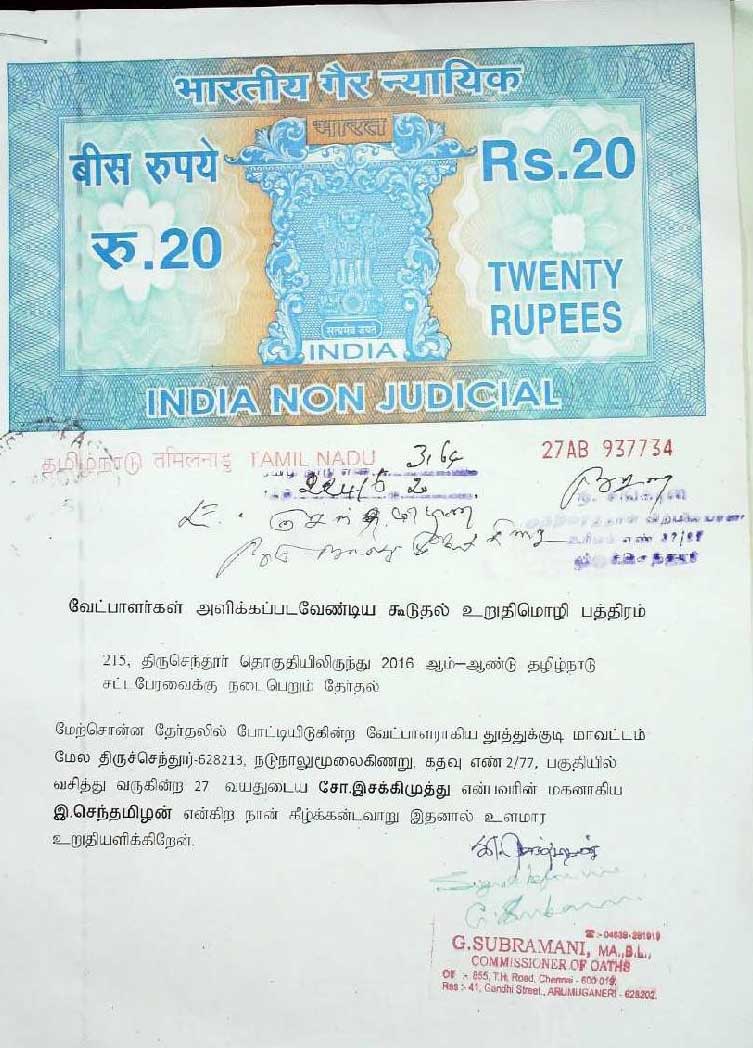 भारतीय गैर न्यायिक
भारत
बीस रुपये
Rs.20
रु.20
TWENTY
RUPEES
सत्यमेव जयते
INDIA
INDIA NON JUDICIAL
தமிழ்நாடு तमिलनाडु TAMIL NADU
27AB 937734
வேட்பாளர்கள் அளிக்கப்படவேண்டிய கூடுதல் உறுதிமொழி பத்திரம்
215, திருசெந்தூர் தொகுதியிலிருந்து 2016 ஆம்-ஆண்டு தமிழ்நாடு
சட்டபேரவைக்கு நடைபெறும் தேர்தல்
மேற்சொன்ன தேர்தலில் போட்டியிடுகின்ற வேட்பாளராகிய தூத்துக்குடி மாவட்டம்
மேல திருச்செந்தூர்-628213, நடுநாலுமூலைகிணறு, கதவு எண் 2/77, பகுதியில்
வசித்து வருகின்ற 27 வயதுடைய சோ.இசக்கிமுத்து என்பவரின் மகனாகிய
இ.செந்தமிழன் என்கிற நான் கீழ்க்கண்டவாறு இதனால் உளமார
உறுதியளிக்கிறேன்.
☎:-04639-281919
G.SUBRAMANI, MA.,B.L.,
COMMISSIONER OF OATHS
Of :- 855, T.H. Road, Chennai - 600 019.
Res :- 41, Gandhi Street., ARUMUGANERI - 628202.